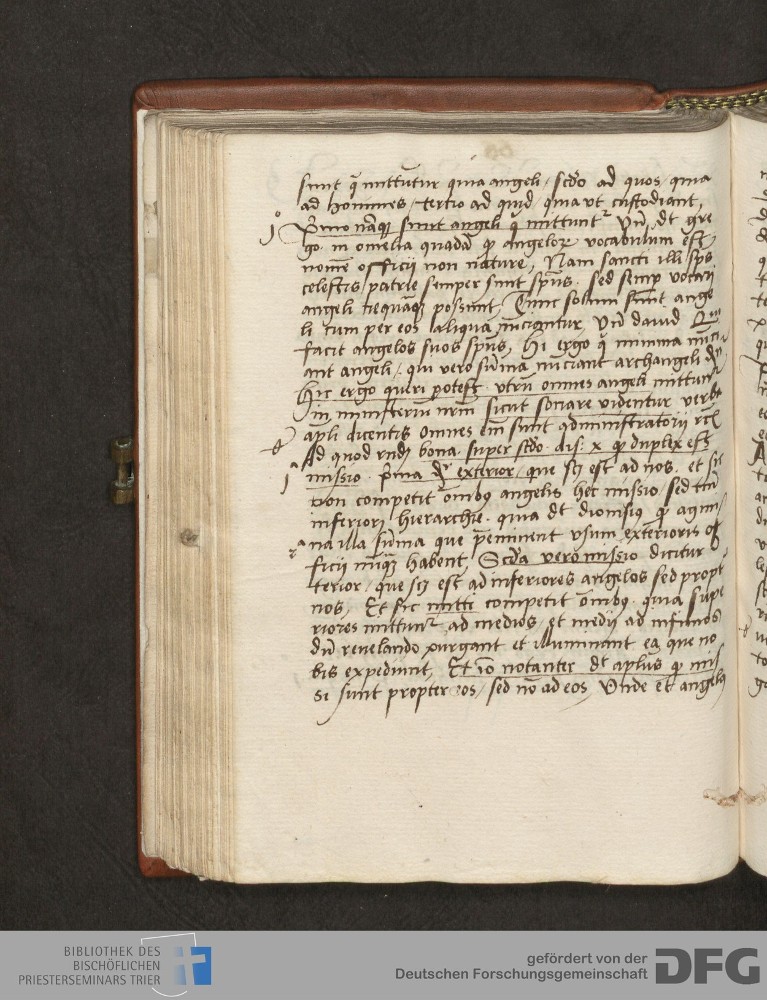 sunt q̄ mittūtur quia angeli / scđo ad quos / quia
ad homines / tertio ad quid / quia vt custodiant,
1º Primo nāq̨ sunt angeli q̄ mittunt᷑ Vn̄ dt gre
go. in omelia quadā ꝙ angeloꝝ vocabulum est
nomē officii non nature, Nam sancti illi sps
celestis patrie semper sunt spūs. sed semꝑ vocari
angeli nequāq̨ possunt, Tunc solum sunt ange
li cum per eos aliqua nūciantur, Vn̄ dauid Qui
facit angelos suos spūs, Hi ergo q̄ minima nūci
ant angeli / qui vero sūma nūciant archangeli
Hic ergo queri potest vtrū omnes angeli mittunt᷑
in ministeriū nr̄m sicut sonare videntur verba
apli dicentis Omnes em̄ sunt administratorii rc̄
Ad quod rn̄d bona. super scđo. dis. x ꝙ duplex est
1ª missio. Prima dr̄ exterior / que scꝫ est ad nos. et sic
non competit oīnibꝰ angelis hec missio / sed tm̄
inferiori hierarchie. quia dt dionisiꝰ ꝙ agmi
2ª na illa sūma que p̄eminent vsum exterioris of
ficii nūq̄ habent, Scđa vero missio dicitur
terior / que scꝫ est ad inferiores angelos sed propt᷑
nos, Et sic mitti competit oīnibꝰ. quia supe
riores mittunt᷑ ad medios / et medii ad infimos
dū reuelando purgant et illuminant ea que no
bis expediunt, Et iō notanter dt aplūs ꝙ mis
si sunt propter eos / sed nō ad eos, Vnde et angelꝰ
BIBLIOTHEK DES
BISCHÖFLICHEN
PRIESTERSEMINARS TRIER
gefördert von der
Deutschen Forschungsgemeinschaft
DFG